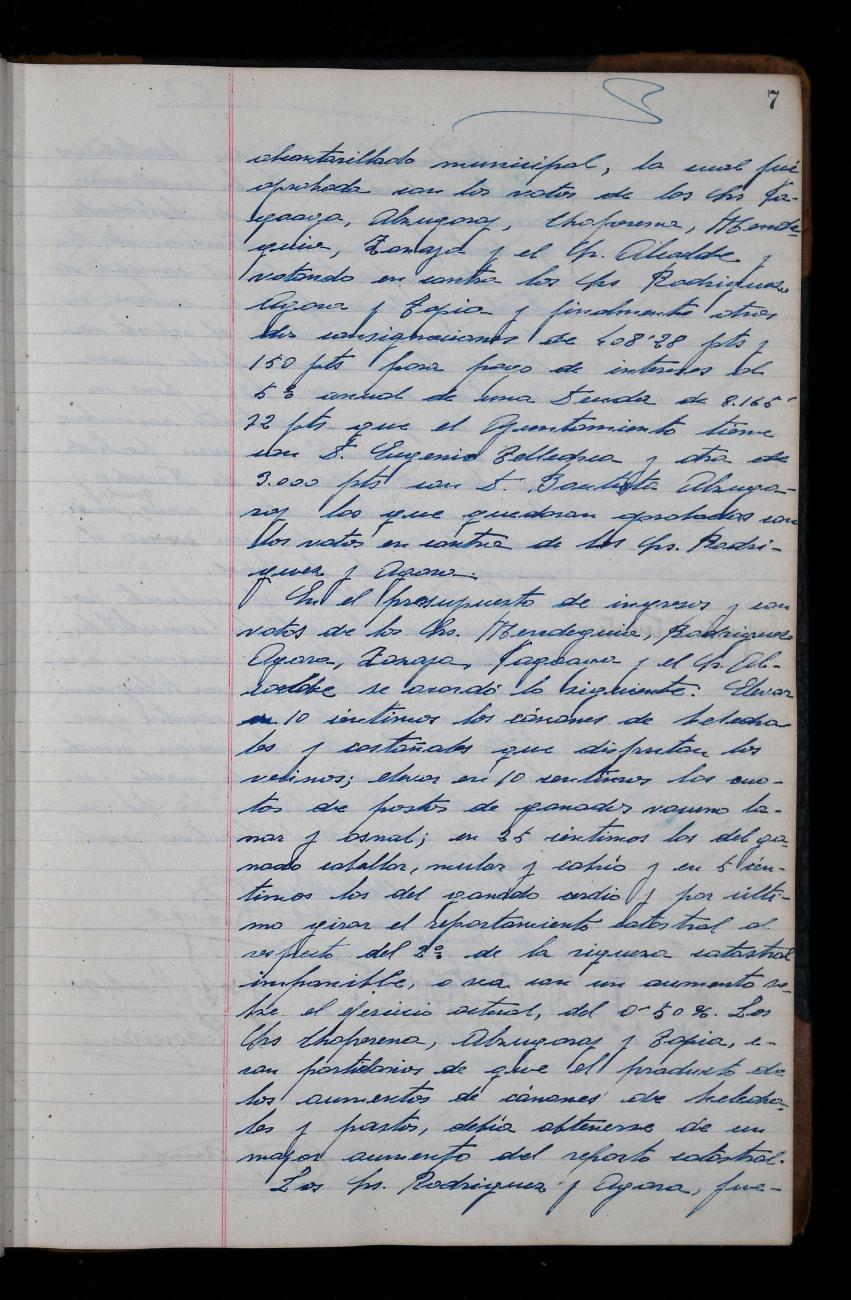 7
alcantarillado municipal, la cual fué
aprobada con los votos de los Srs Ya-
guaga, Alzugaray, Choperena, Mende-
guia, Zanaza y el Sr. Alcalde y
votando en contra los Srs Rodriguez
Agara y Tapia y finalmente otras
dos consignaciones de 408'28 pts y
150 pts para pago de intereses al
5% anual de una Deuda de 8.165'
72 pts que el Ayuntamiento tiene
con D. Eugenio Telleches y otra de
3.000 pts con D. Bautista Alzuga-
ray los que quedaron aprobados con
los votos en contra de los Srs. Rodri-
guez y Agara.
En el presupuesto de ingresos y con
votos de los Srs. Mendeguia, Rodriguez
Agara, Zanaza, y el Sr. Al-
calde se acordó lo siguiente: Elevar
en 10 céntimos los cánones de helecha
les y castañales que disfrutan los
vecinos; elevar en 10 centimos las cuo-
tas de pastos de ganados vacuno la-
nar y asnal; en 25 céntimos las del ga-
nado caballar, mular y cabrío y en 5 cén-
timos las del ganado cerdío y por últi-
mo girar el repartamiento catastral al
respecto del 2% de la riqueza catastral
imponible, o sea con un aumento so-
bre el ejercicio actual, del 0'50%. Los
Srs Choperena, Alzugaray y Tapia, e-
ran partidarios de que el producto de
los aumentos de cánones de helecha-
les y pastos, debía obtenerse de un
mayor aumento del reparto catastral.
Los Srs. Rodriguez y Agara, fue-